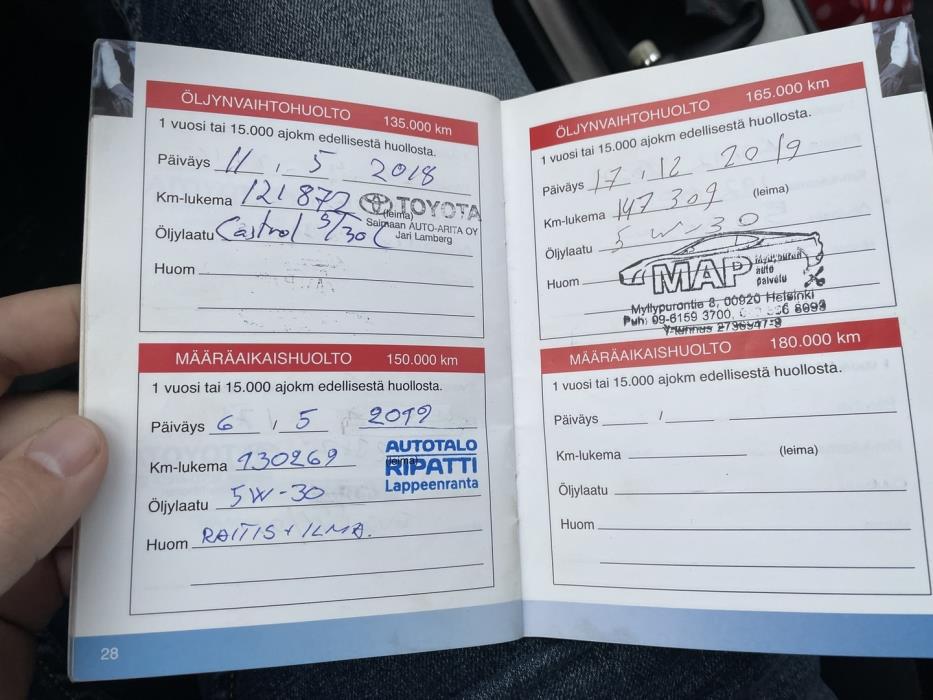 ÖLJYNVAIHTOHUOLTO 135.000 km
1 vuosi tai 15.000 ajokm edellisestä huollosta.
Päiväys 11 , 5 2018
Km-lukema 121 872
(leima)
TOYOTA
Saimaan AUTO-ARITA OY
Jari Lamberg
Öljylaatu Castrol 5/30
Huom
MÄÄRÄAIKAISHUOLTO 150.000 km
1 vuosi tai 15.000 ajokm edellisestä huollosta.
Päiväys 6 , 5 2019
Km-lukema 130269
(leima)
AUTOTALO
RIPATTI
Lappeenranta
Öljylaatu 5W-30
Huom RAITIS + ILMA.
28
ÖLJYNVAIHTOHUOLTO 165.000 km
1 vuosi tai 15.000 ajokm edellisestä huollosta.
Päiväys 17 , 12 2019
Km-lukema 147 309 (leima)
Öljylaatu 5 W-30
Huom
MAP
auto
palvelu
Myllypurontie 8, 00920 Helsinki
Puh. 09-6159 3700,
Y-tunnus
MÄÄRÄAIKAISHUOLTO 180.000 km
1 vuosi tai 15.000 ajokm edellisestä huollosta.
Päiväys ,
Km-lukema (leima)
Öljylaatu
Huom